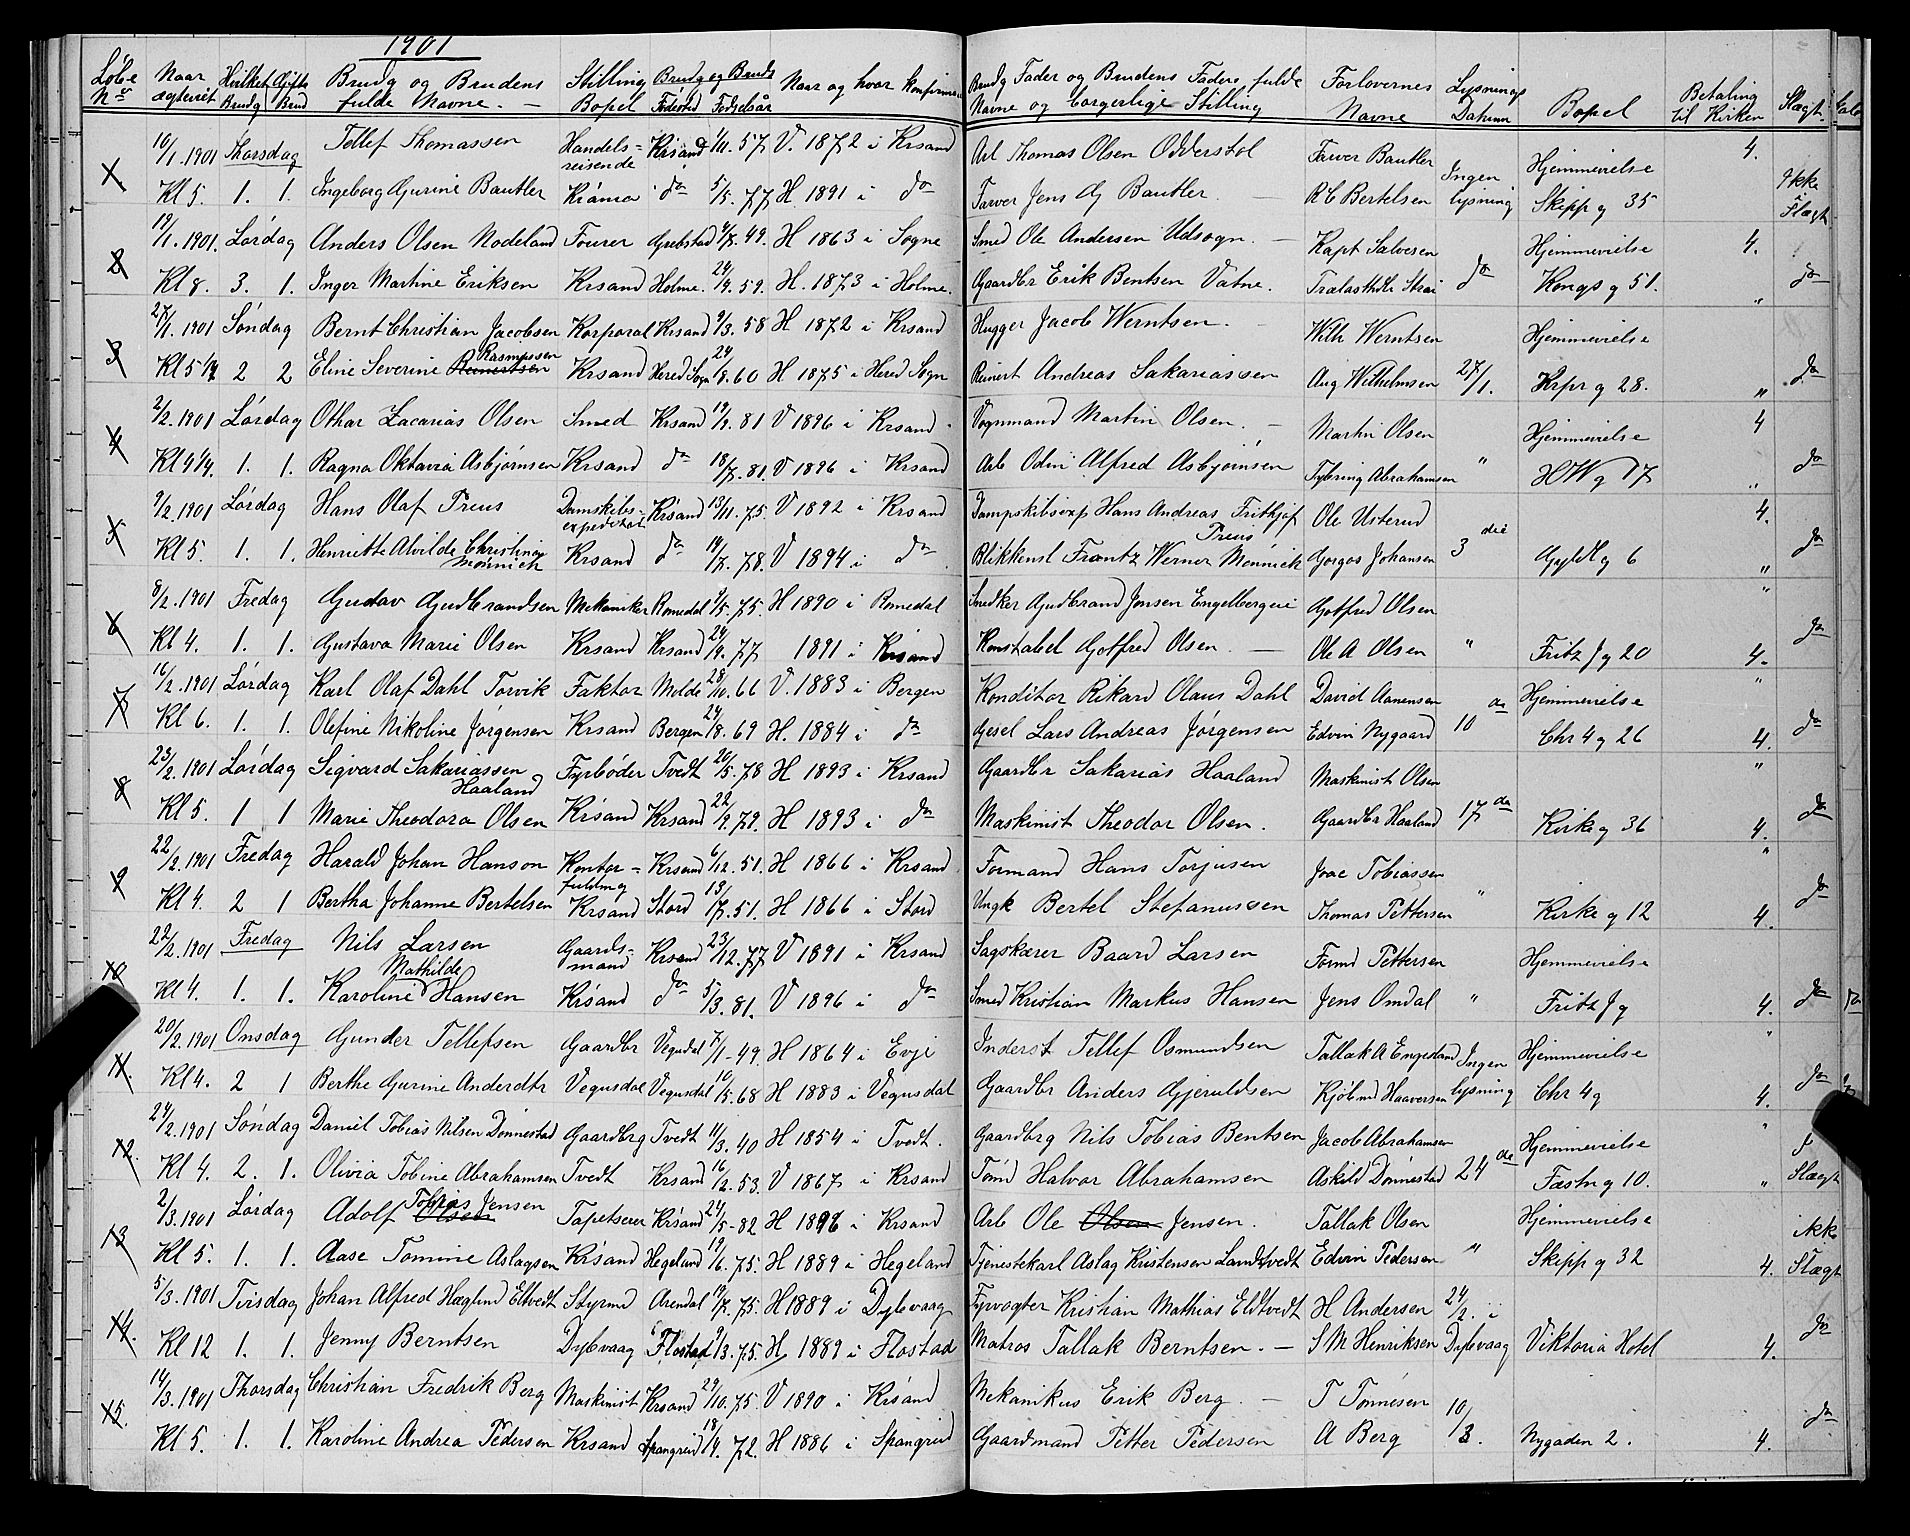 1901
Løbe Nr | Naar ægteviet | Hvilket Gifte Brudg Brud | Brudg og Brudens fulde Navne. — | Stilling Bopel | Brudg og Bruds Fødested Fødselsår | Naar og hvor konfirmer | Brudg Fader og Brudens Faders fulde Navne og borgerlige Stilling | Forlovernes Navne | Lysnings Datum | Bopel | Betaling til Kirken | Slægt
1 | 10/1.1901 Thorsdag | Tellef Thomassen | Handels=reisende | Krsand | 1/11.57 | V. 1872 i Krsand | Arb Thomas Olsen Odderstøl | Farver Bautler | Ingen | Hjemmevielse | 4.
Kl 5. | 1. | 1. | Ingeborg Gurine Bautler | Krsand | do | 5/5.77 | H 1891 i do | Farver Jens Aj Bautler. | R C Bertelsen | lysning | Skipp g 35 | Ikke Slægt
2 | 19/1.1901. Lørdag | Anders Olsen Nodeland | Fourer | Grebstad | 4/8.49. | H 1863 i Søgne | Smed Ole Andersen Udsogn. — | Kapt Salvesen | Hjemmevielse | 4.
Kl 8. | 3. | 1. | Inger Martine Eriksen | Krsand | Holme. | 24/9.59. | H. 1873 i Holme. | Gaardbr Erik Bentsen Vatne. | Trælasthdlr Strai | do | Kongs g 51. | do
3 | 27/1.1901 Søndag | Bernt Christian Jacobsen | Korporal | Krsand | 9/3.58 | H 1872 i Krsand | Hugger Jacob Werntsen. — | Wilh Werntsen | Hjemmevielse
Kl 5 1/4 | 2 | 2 | Eline Severine Reinertsen Rasmussen | Krsand | Hered Sogn | 24/8.60 | H 1875 i Hered Sogn | Reinert Andreas Sakariassen | Aug Wilhelmsen | 27/1. | Krpr g 28. | " | do
4 | 2/2.1901 Lørdag | Othar Zacarias Olsen | Smed | Krsand | 19/9.81 | V 1896 i Krsand. | Vognmand Martin Olsen. — | Martin Olsen | Hjemmevielse | 4
Kl 4 1/4. | 1. | 1. | Ragna Oktavia Asbjørnsen | Krsand | do | 18/7.81. | V 1896 i Krsand | Arb Odin Alfred Asbjørnsen | Fybring Abrahamsen | " | H W g 17 | " | do
5 | 9/2.1901 Lørdag | Hans Olaf Treus | Damskibs-expeditør | Krsand | 13/11.75. | V 1892 i Krsand | Dampskibsexp Hans Andreas Frithjof Treus | Ole Usterud | 4.
Kl 5. | 1. | 1. | Henriette Alvilde Christine Mønnich | Krsand | do | 14/7.78. | V 1894 i do | Blikkensl Frantz Werner Mønnich | Gorgas Johansen | 3 die | Gyldl g 6 | " | do
6 | 8/2.1901 Fredag | Gustav Gudbrandsen | Mekaniker | Romedal | 9/5.75. | H 1890 i Romedal | Snedker Gudbrand Jonsen Engelbergeie | Gotfred Olsen | "
Kl 4. | 1. | 1. | Gustava Marie Olsen | Krsand | Krsand | 24/9.77 | 1891 i Krsand | Konstabel Gotfred Olsen. — | Ole A Olsen | " | Fritz J g 20 | 4. | do
7 | 16/2.1901 Lørdag | Karl Olaf Dahl Torvik | Faktor | Molde | 28/10.66 | V. 1883 i Bergen | Konditor Rikard Olaus Dahl | David Aanensen | Hjemmevielse | "
Kl 6. | 1. | 1. | Olefine Nikoline Jørgensen | Krsand | Bergen | 24/8.69 | H. 1884 i do | Gjesel Lars Andreas Jørgensen | Edvin Nygaard | 10 de | Chr 4 g 26 | 4. | do
8 | 23/2.1901 Lørdag | Sigvard Sakariassen Haaland | Fyrbøder | Tvedt | 20/5.78 | H 1893 i Krsand | Gaardbr Sakarias Haaland | Maskinist Olsen | "
Kl 5. | 1 | 1 | Marie Theodora Olsen | Krsand | Krsand | 22/9.79. | H 1893 i do | Maskinist Theodor Olsen. | Gaardbr Haaland | 17 de | Kirke g 36 | 4. | do
9 | 22/2.1901 Fredag | Harald Johan Hanson | Kontor=fuldmg | Krsand | 6/12.51. | H 1866 i Krsand | Formand Hans Torjusen | Joac Tobiassen | "
Kl 4. | 2 | 1 | Bertha Johanne Bertelsen | Krsand | Stord | 13/7.51. | H 1866 i Stord | Ungk Bertel Stefanussen | Thomas Pettersen | " | Kirke g 12 | 4. | do
10 | 22/2.1901 Fredag | Nils Larsen | Gaards-mand | Krsand | 23/12.77 | V 1891 i Krsand | Sagskærer Baard Larsen | Formd Pettersen | Hjemmevielse
Kl 4. | 1. | 1. | Karoline Mathilde Hansen | Krsand | do | 5/3.81. | V 1896 i do | Smed Kristian Markus Hansen | Jens Omdal | " | Fritz J g | 4. | do
11. | 20/2.1901 Onsdag | Gunder Tellefsen | Gaardbr | Vegusdal | 7/1-49. | H 1864 i Evje | Inderst Tellef Osmundsen | Tallak A Engesland | Ingen | Hjemmevielse | "
Kl 4. | 2 | 1 | Berthe Gurine Andersdtr | Vegusdal | Vegusdal | 10/5.68 | H 1883 i Vegusdal | Gaardbr Anders Gjeruldsen | Kjøbmd Haaversen | lysning | Chr 4 g | 4. | do
12. | 24/2.1901 Søndag | Daniel Tobias Nilsen Dønnestad | Gaardbrg | Tvedt | 11/3.40 | H 1854 i Tvedt. | Gaardbrg Nils Tobias Bentsen | Jacob Abrahamsen | Hjemmevielse | "
Kl 4. | 2. | 1. | Olivia Tobine Abrahamsen | Tvedt | Krsand | 16/2.53. | V 1867 i Krsand | Tømd Halvor Abrahamsen | Askild Dønnestad | 24 de | Fæstn g 10. | " | Slægt
13 | 2/3.1901 Lørdag | Adolf Olsen Tobias Jensen | Tapetserer | Krsand | 24/5-82 | H 1896 i Krsand | Arb Ole Olsen Jensen. | Tallak Olsen | Hjemmevielse | ikke
Kl 5. | 1. | 1. | Aase Tomine Aslagsen | Krsand | Hegeland | 19/6.75. | H 1889 i Hegeland | Tjenestekarl Aslag Kristensen Landtvedt | Edvin Pedersen | " | Skipp g 32 | 4. | Slægt
14. | 5/3.1901 Tirsdag | Johan Alfred Hæglund Eltvedt | Styrmd | Arendal | 19/7.75. | H 1889 i Dybvaag | Fyrvogter Kristian Mathias Eldtvedt | H Andersen | 24/2. i
Kl 12 | 1. | 1. | Jenny Berntsen | Dybvaag | Flostad | 9/3.75. | H 1889 i Flostad | Matros Tallak Berntsen. — | S M Henriksen | Dybvaag | Viktoria Hotel | 4. | do
15. | 14/3.1901 Thorsdag | Christian Fredrik Berg | Maskinist | Krsand | 29/10.75. | V 1890 i Krsand | Mekanikus Erik Berg. — | T Tønnesen | 10
Kl 5. | 1. | 1. | Karoline Andrea Pedersen | Krsand | Spangreid | 18/4.72. | H 1886 i Spangreid | Gaardmand Petter Pedersen | A Berg | /3. | Nygaden 2. | 4. | do